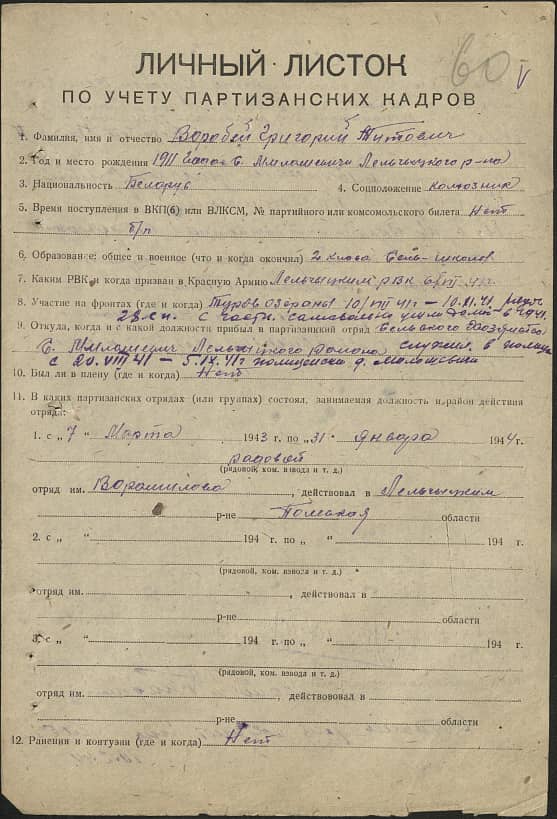 60 V
ЛИЧНЫЙ ЛИСТОК
ПО УЧЕТУ ПАРТИЗАНСКИХ КАДРОВ
1. Фамилия, имя и отчество Воробей Григорий Титович
2. Год и место рождения 1911 Милошевичи Лельчыцкого р-на
3. Национальность Белорус 4. Соцположение колхозник
5. Время поступления в ВКП(б) или ВЛКСМ, № партийного или комсомольского билета Нет
б/п
6. Образование: общее и военное (что и когда окончил) 2 класса Сель-школы
7. Каким РВК и когда призван в Красную Армию Лельчыцким рвк 41 г.
8. Участие на фронтах (где и когда) Туров Озераны 10/VII 41 г —
с части самовольно ушли домой в 1941.
9. Откуда, когда и с какой должности прибыл в партизанский отряд Сельского Хозяйства
Лельчыцкого района служил в полиции
с 20.VIII 41 — 5.IX.41 г полицейский д. Милошевичи
10. Был ли в плену (где и когда) Нет
11. В каких партизанских отрядах (или группах) состоял, занимаемая должность и район действия
отряда:
1. с „7 “ Марта 1943 г. по „31“ января 1944 г.
рядовой
(рядовой, ком. взвода и т. д.)
отряд им. Ворошилова, действовал в Лельчыцким
р-не Полеская области
2. с „ “ 194 г. по „ “ 194 г.
(рядовой, ком. взвода и т. д.)
отряд им. , действовал в
р-не области
3. с „ “ 194 г. по „ “ 194 г.
(рядовой, ком. взвода и т. д.)
отряд им. , действововал в
р-не области
12. Ранения и контузии (где и когда) Нет